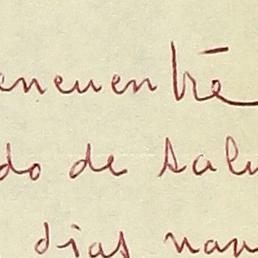 encuentre
do de salu
dias nan